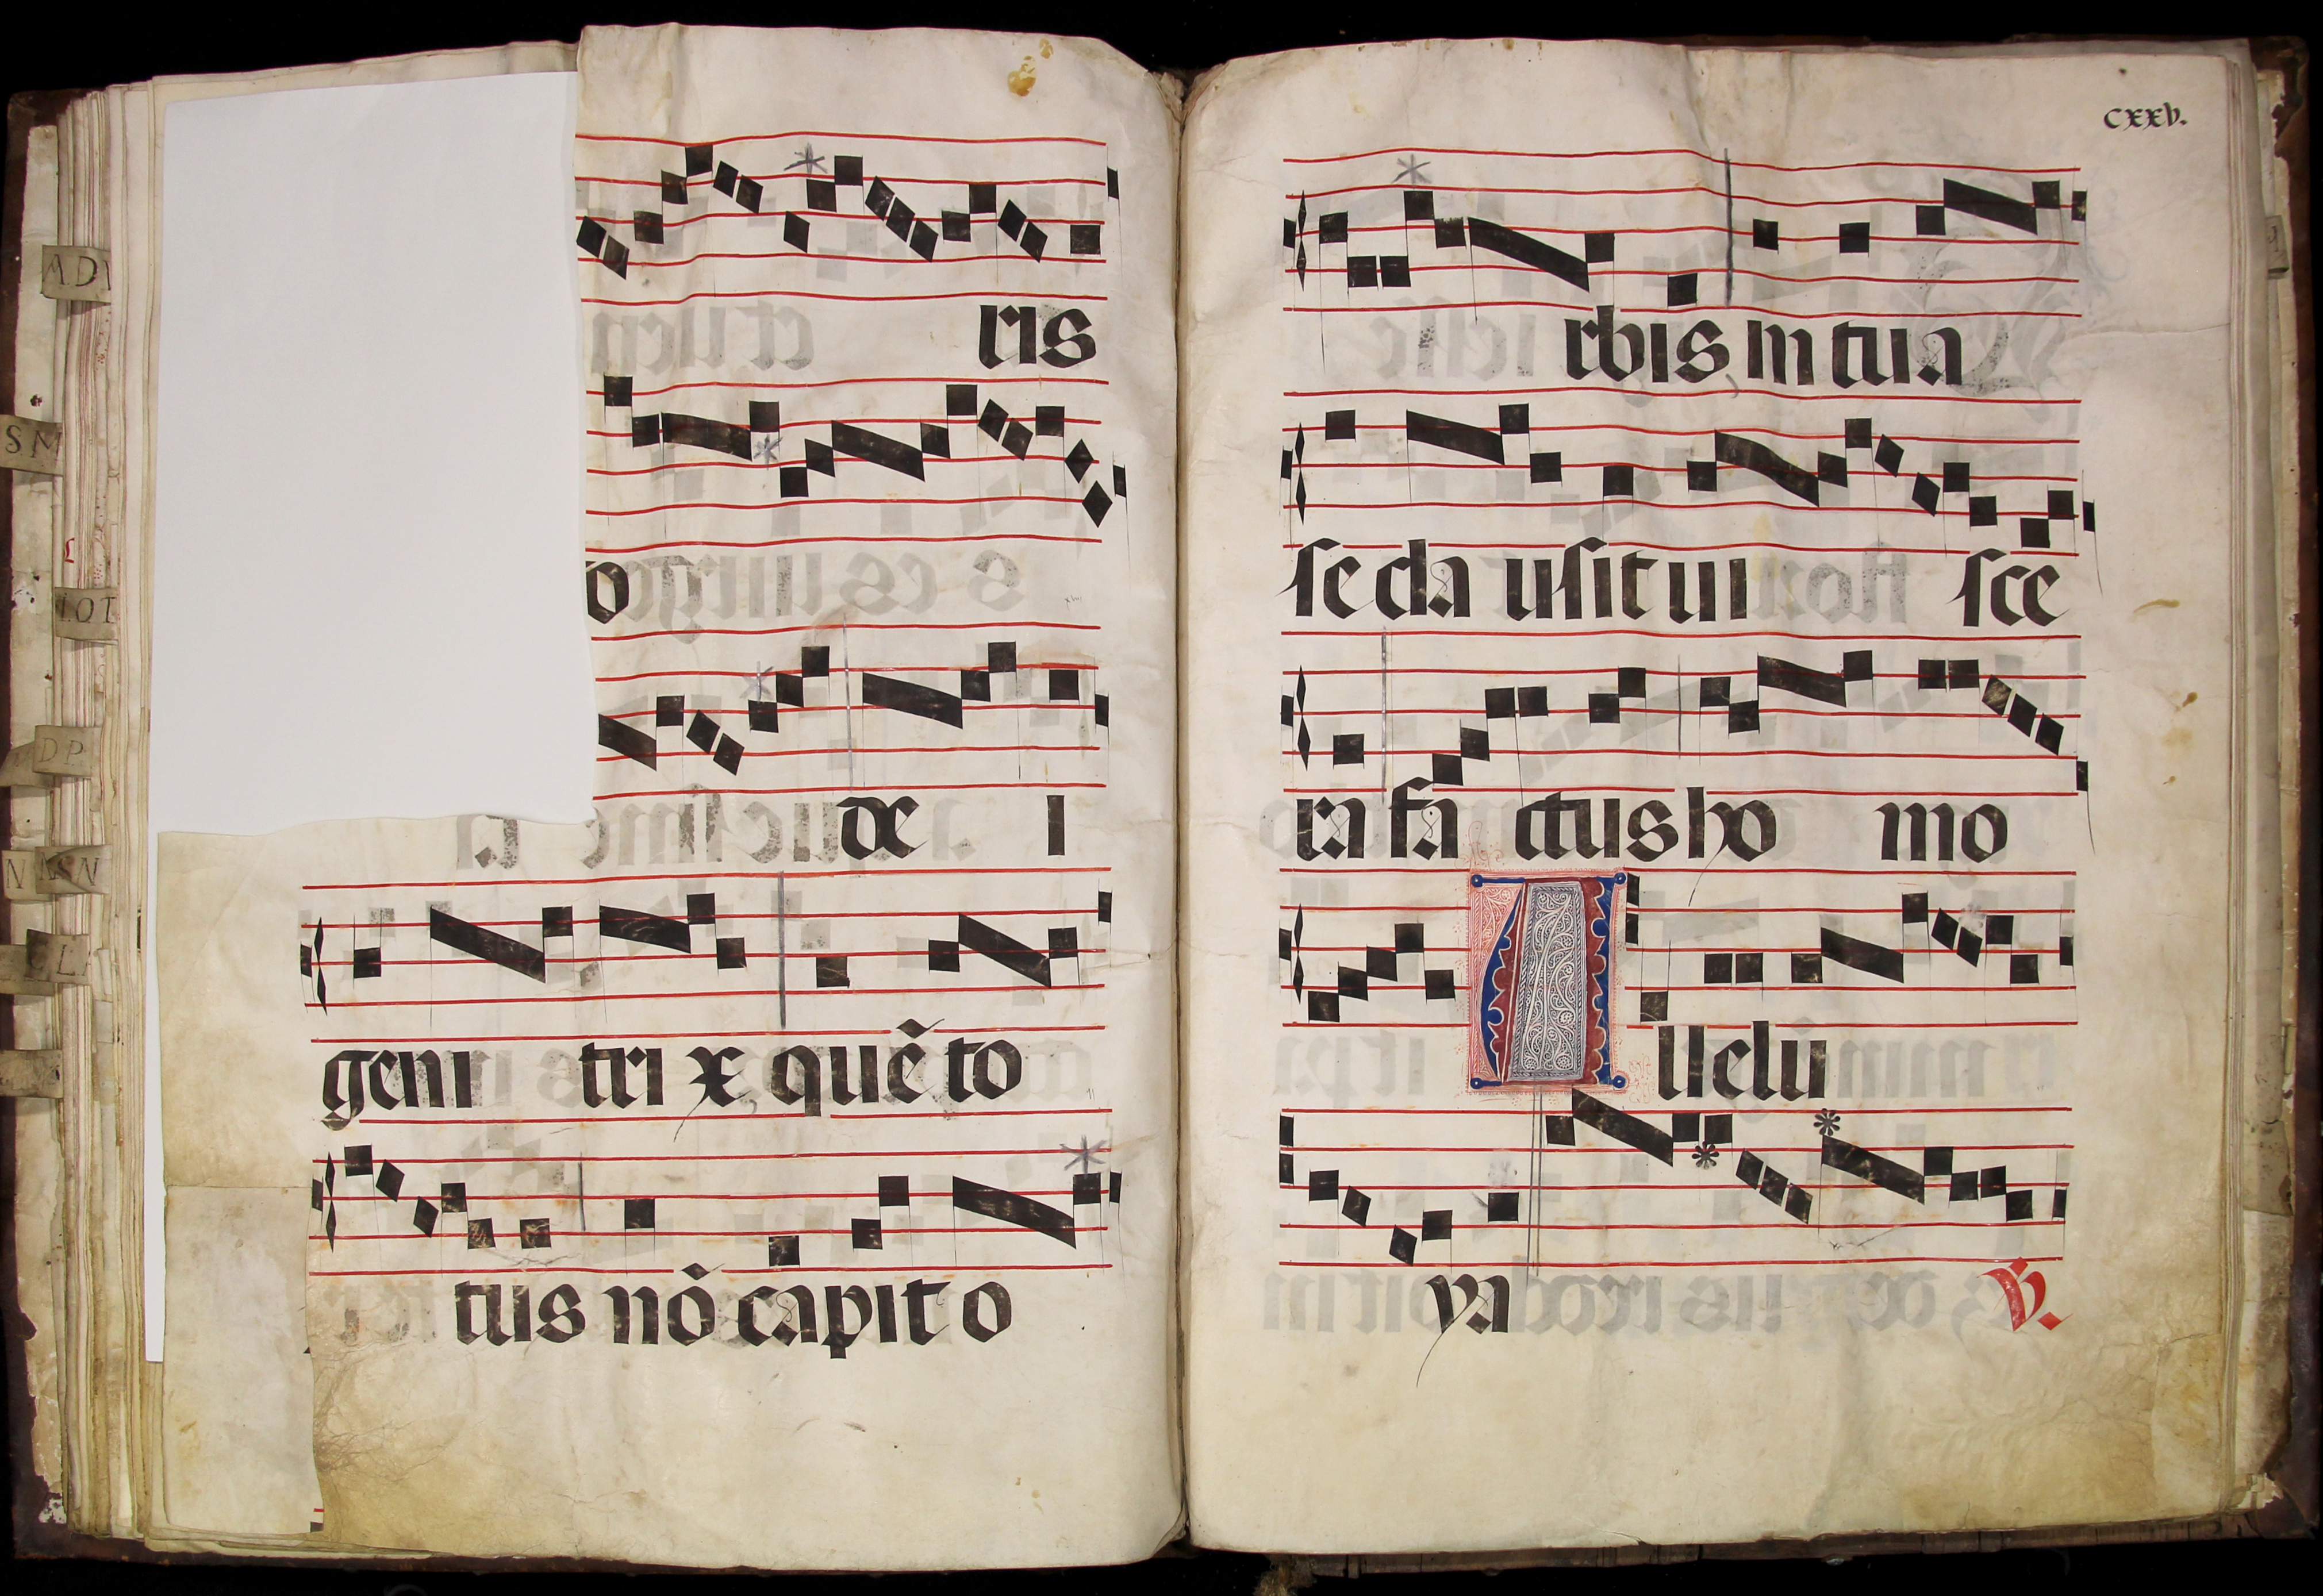 MD
SM
LOT
DP
N
NSN
L
ris
o
de i
geni tri x quē to
tus nō capit o
cxxv.
rbis in tua
se cla usit ui sce
ra fa ctus ho mo
A lleluia
ya
℣.